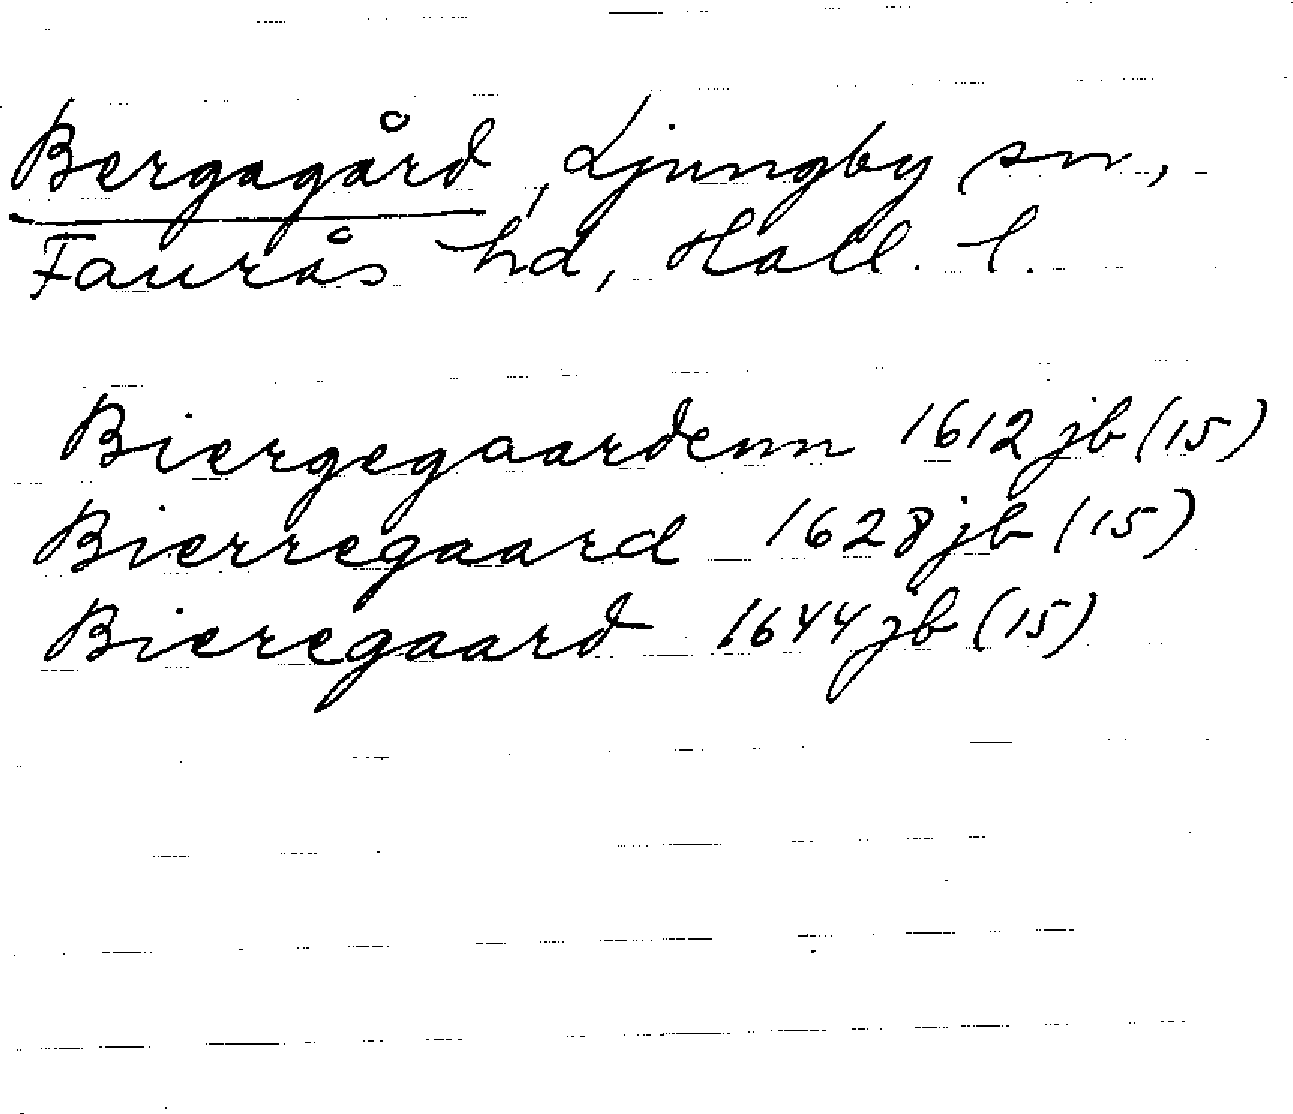 Bergagård, Ljungby sn,
Faurås hd, Hall. l.
Biergegaardenn 1612 jb (15)
Bierregaard 1628 jb (15)
Bieregaard 1644 jb (15)